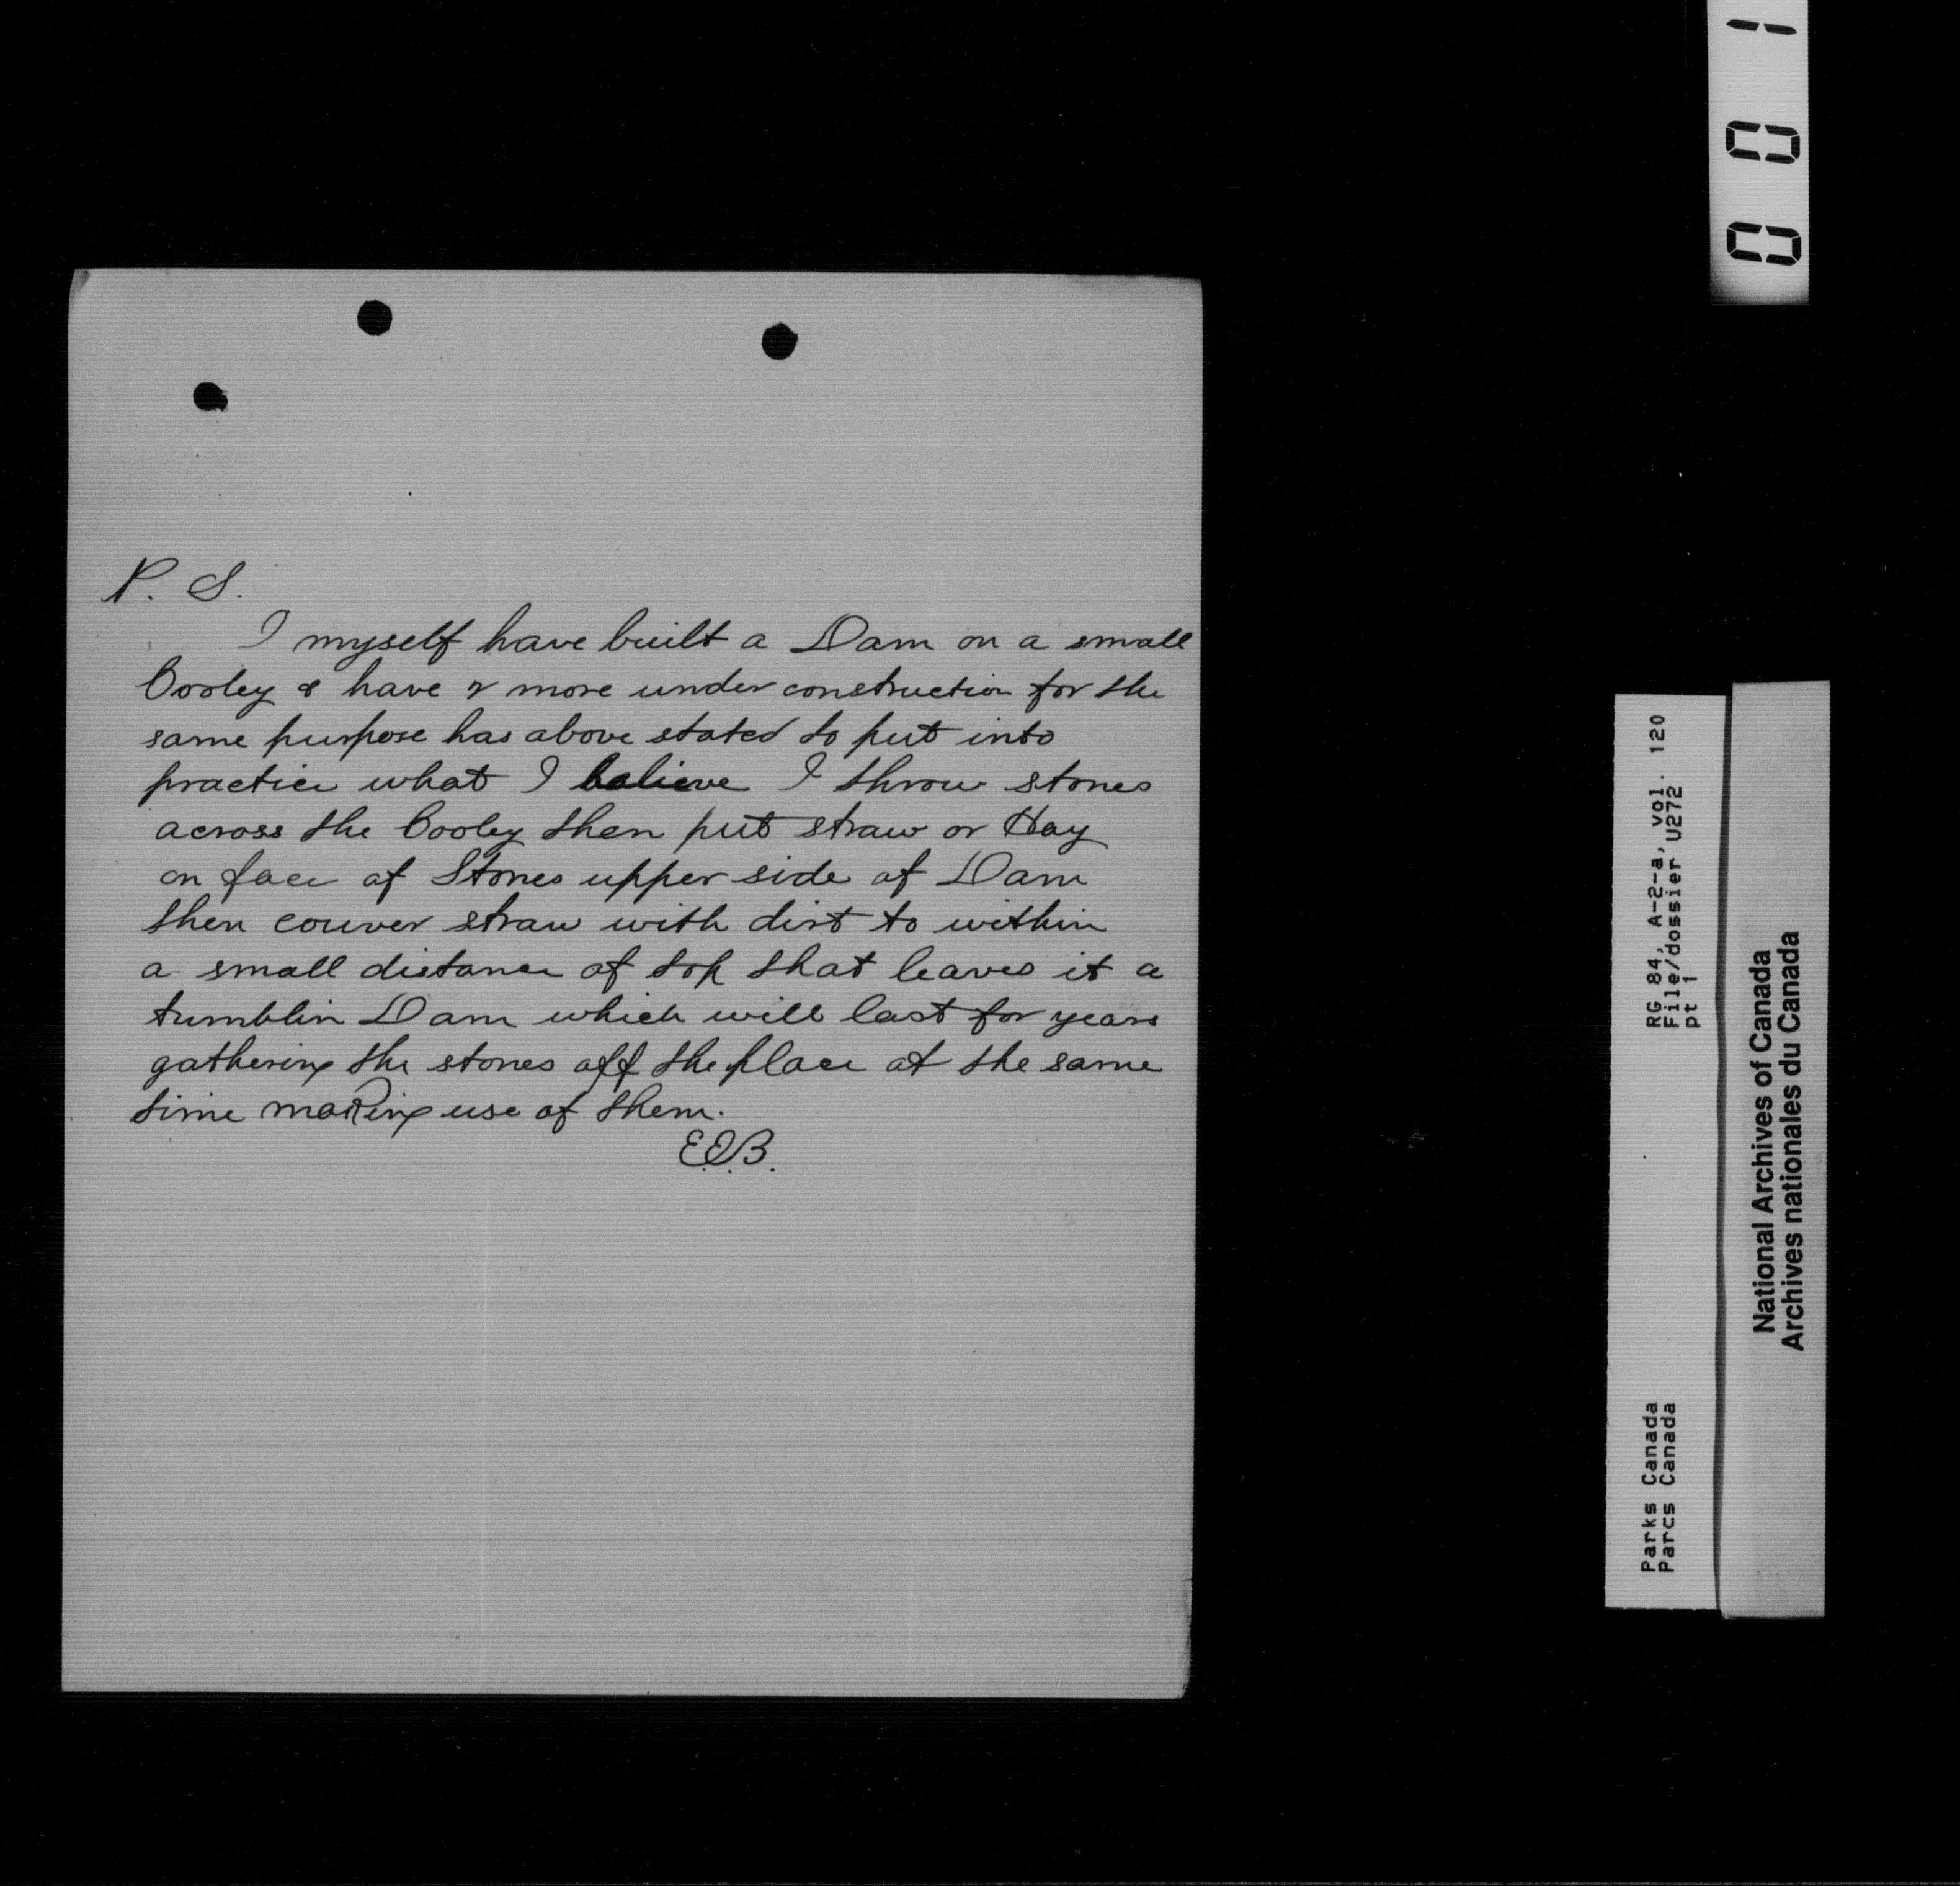 P. S.
I myself have built a Dam on a small
Cooley & have 2 more under construction for the
same purpose has above stated to put into
practice what I believe I throw stones
across the Cooley then put straw or Hay
on face of Stones upper side of Dam
then couver straw with dirt to within
a small distance of top that leaves it a
tumblin Dam which will last for years
gathering the stones off the place at the same
time making use of them.
E.O.B.
001
RG 84, A-2-a, vol. 120
File/dossier U272
pt 1
Parks Canada
Parcs Canada
National Archives of Canada
Archives nationales du Canada